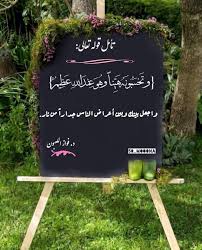 تأمل قوله تعالى:
﴿وَتَحْسَبُونَهُ هَيِّنًا وَهُوَ عِندَ اللَّهِ عَظِيمٌ﴾
واجعل بينك وبين أعراض الناس جداراً من نار.
د. فواز